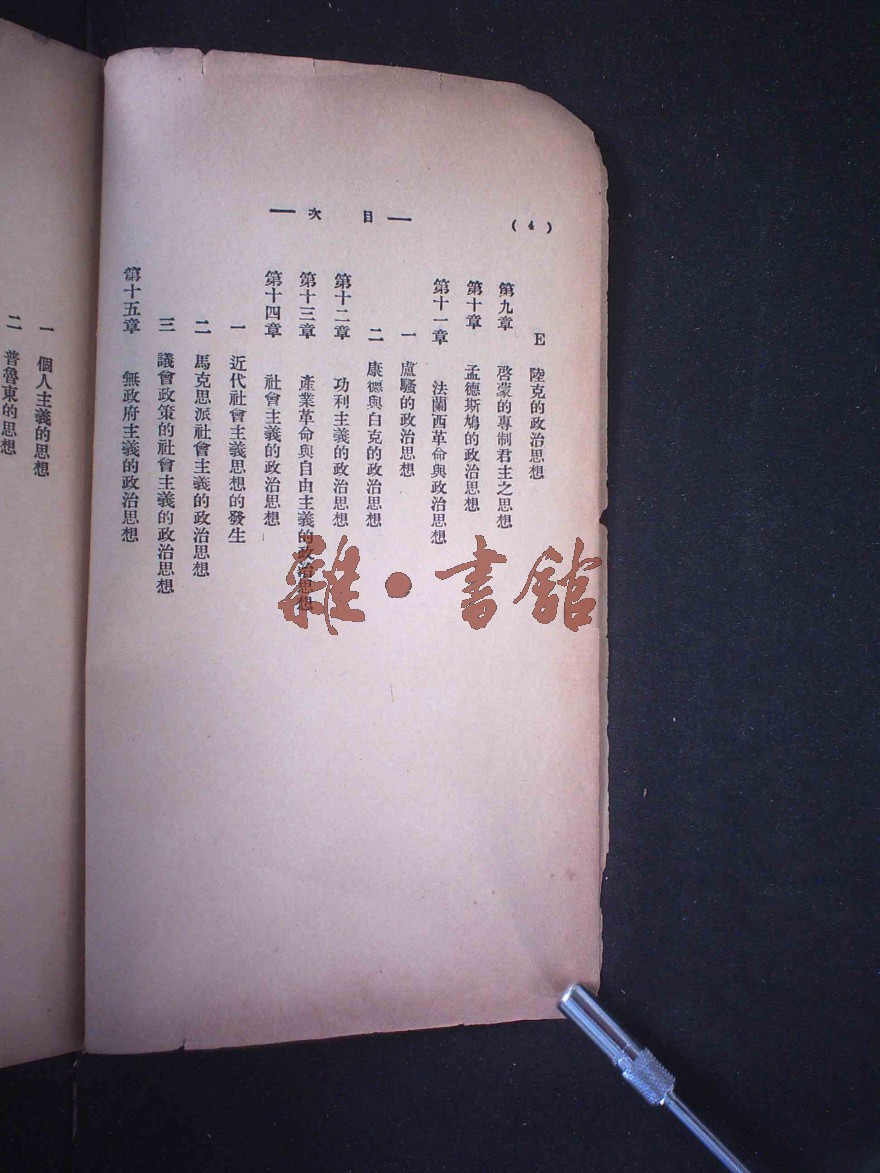 (4)
— 目 次 —
E 陸克的政治思想
第九章 啓蒙的專制君主之思想
第十章 孟德斯鳩的政治思想
第十一章 法蘭西革命與政治思想
一 盧騷的政治思想
二 康德與白克的政治思想
第十二章 功利主義的政治思想
第十三章 產業革命與自由主義的政治思想
第十四章 社會主義的政治思想
一 近代社會主義思想的發生
二 馬克思派社會主義的政治思想
三 議會政策的社會主義的政治思想
第十五章 無政府主義的政治思想
一 個人主義的思想
二 普魯東的思想
雜·書館